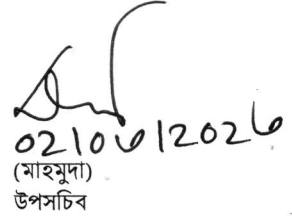 02/06/2026
(মাহমুদা)
উপসচিব